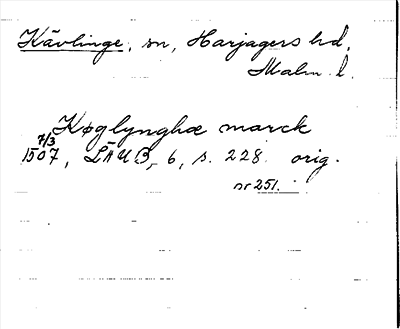 Kävlinge, sn, Harjagers hd,
Malm. l.
Køglynghæ marck
7/3
1507, LÄUB, 6, s. 228. orig.
nr 251.